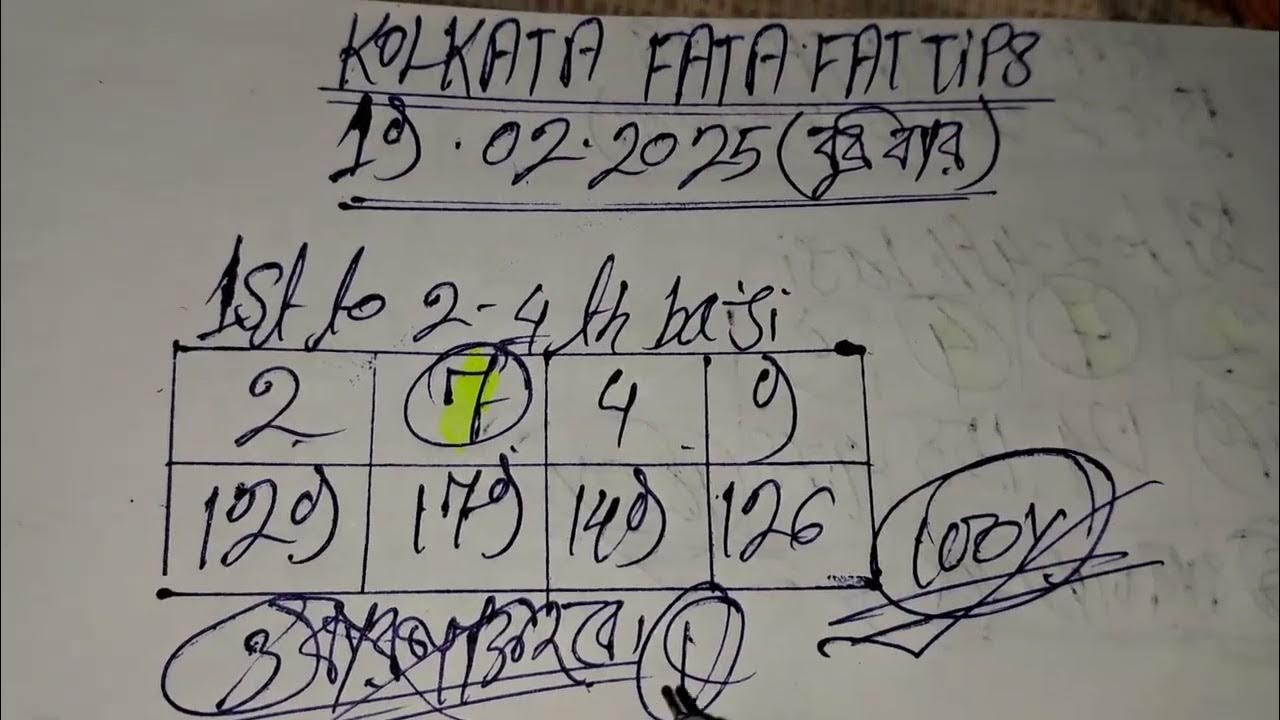 KOLKATA FATA FAT TIPS
19.02.2025 (বুধবার)
1st to 2-4 th baji
2 7 4 9
129 179 149 126
100%
1